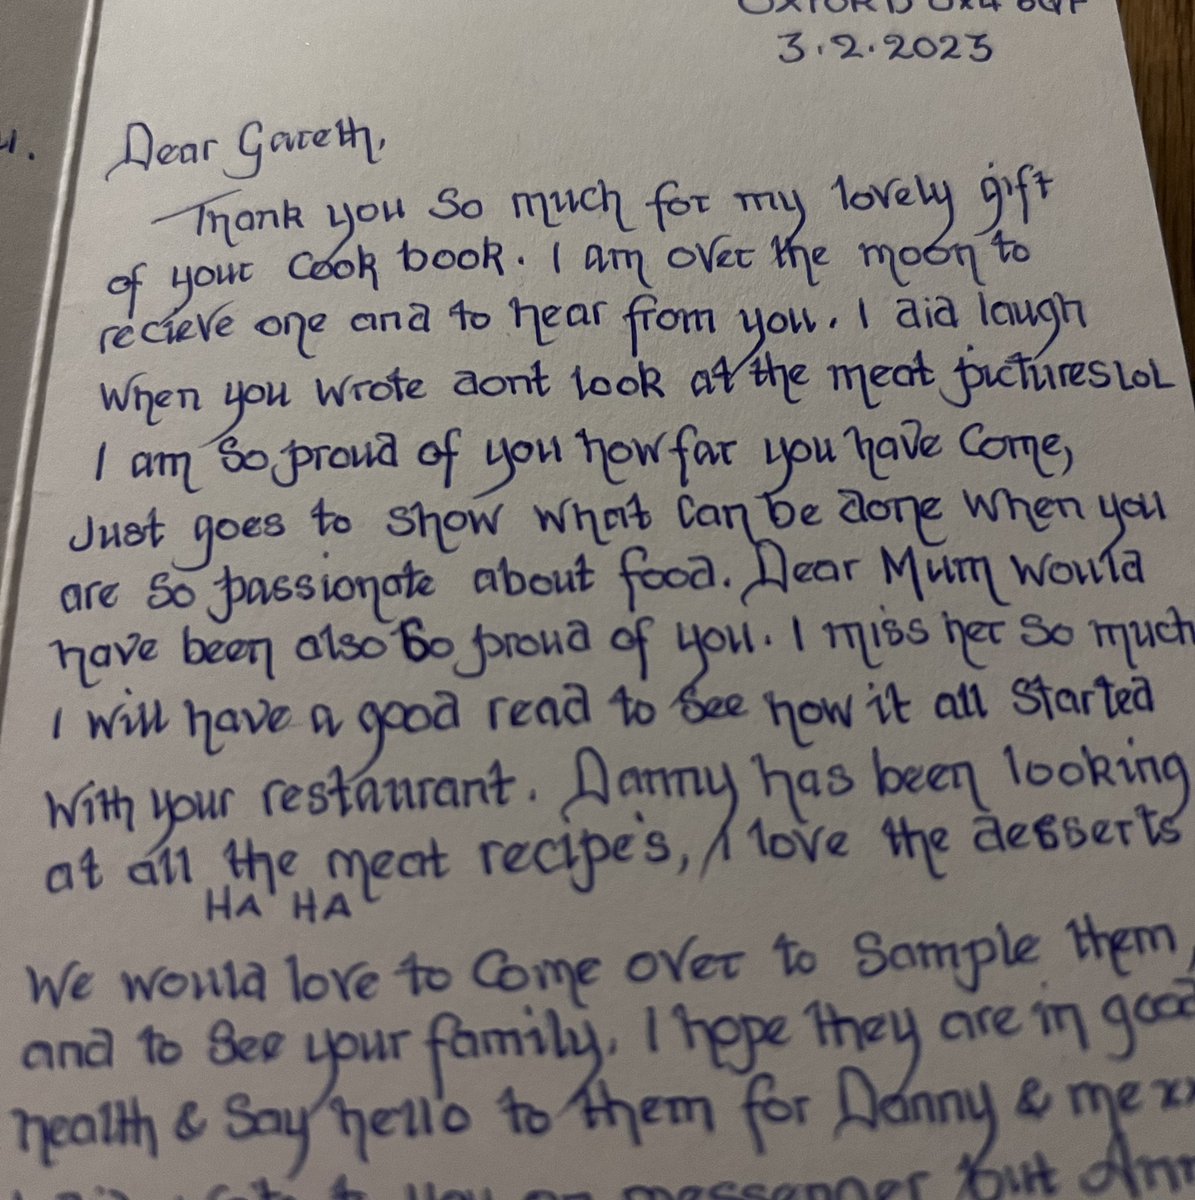 OXFORD OX4
3.2.2023
Dear Gareth,
Thank you so much for my lovely gift
of your cook book. I am over the moon to
recieve one and to hear from you. I did laugh
when you wrote dont look at the meat pictures LOL
I am so proud of you how far you have come,
Just goes to show what can be done when you
are so passionate about food. Dear Mum would
have been also so proud of you. I miss her so much
I will have a good read to see how it all started
with your restaurant. Danny has been looking
at all the meat recipe's, I love the desserts
HA HA
We would love to come over to sample them,
and to see your family. I hope they are in good
health & say hello to them for Danny & me xx
to you on messenger but